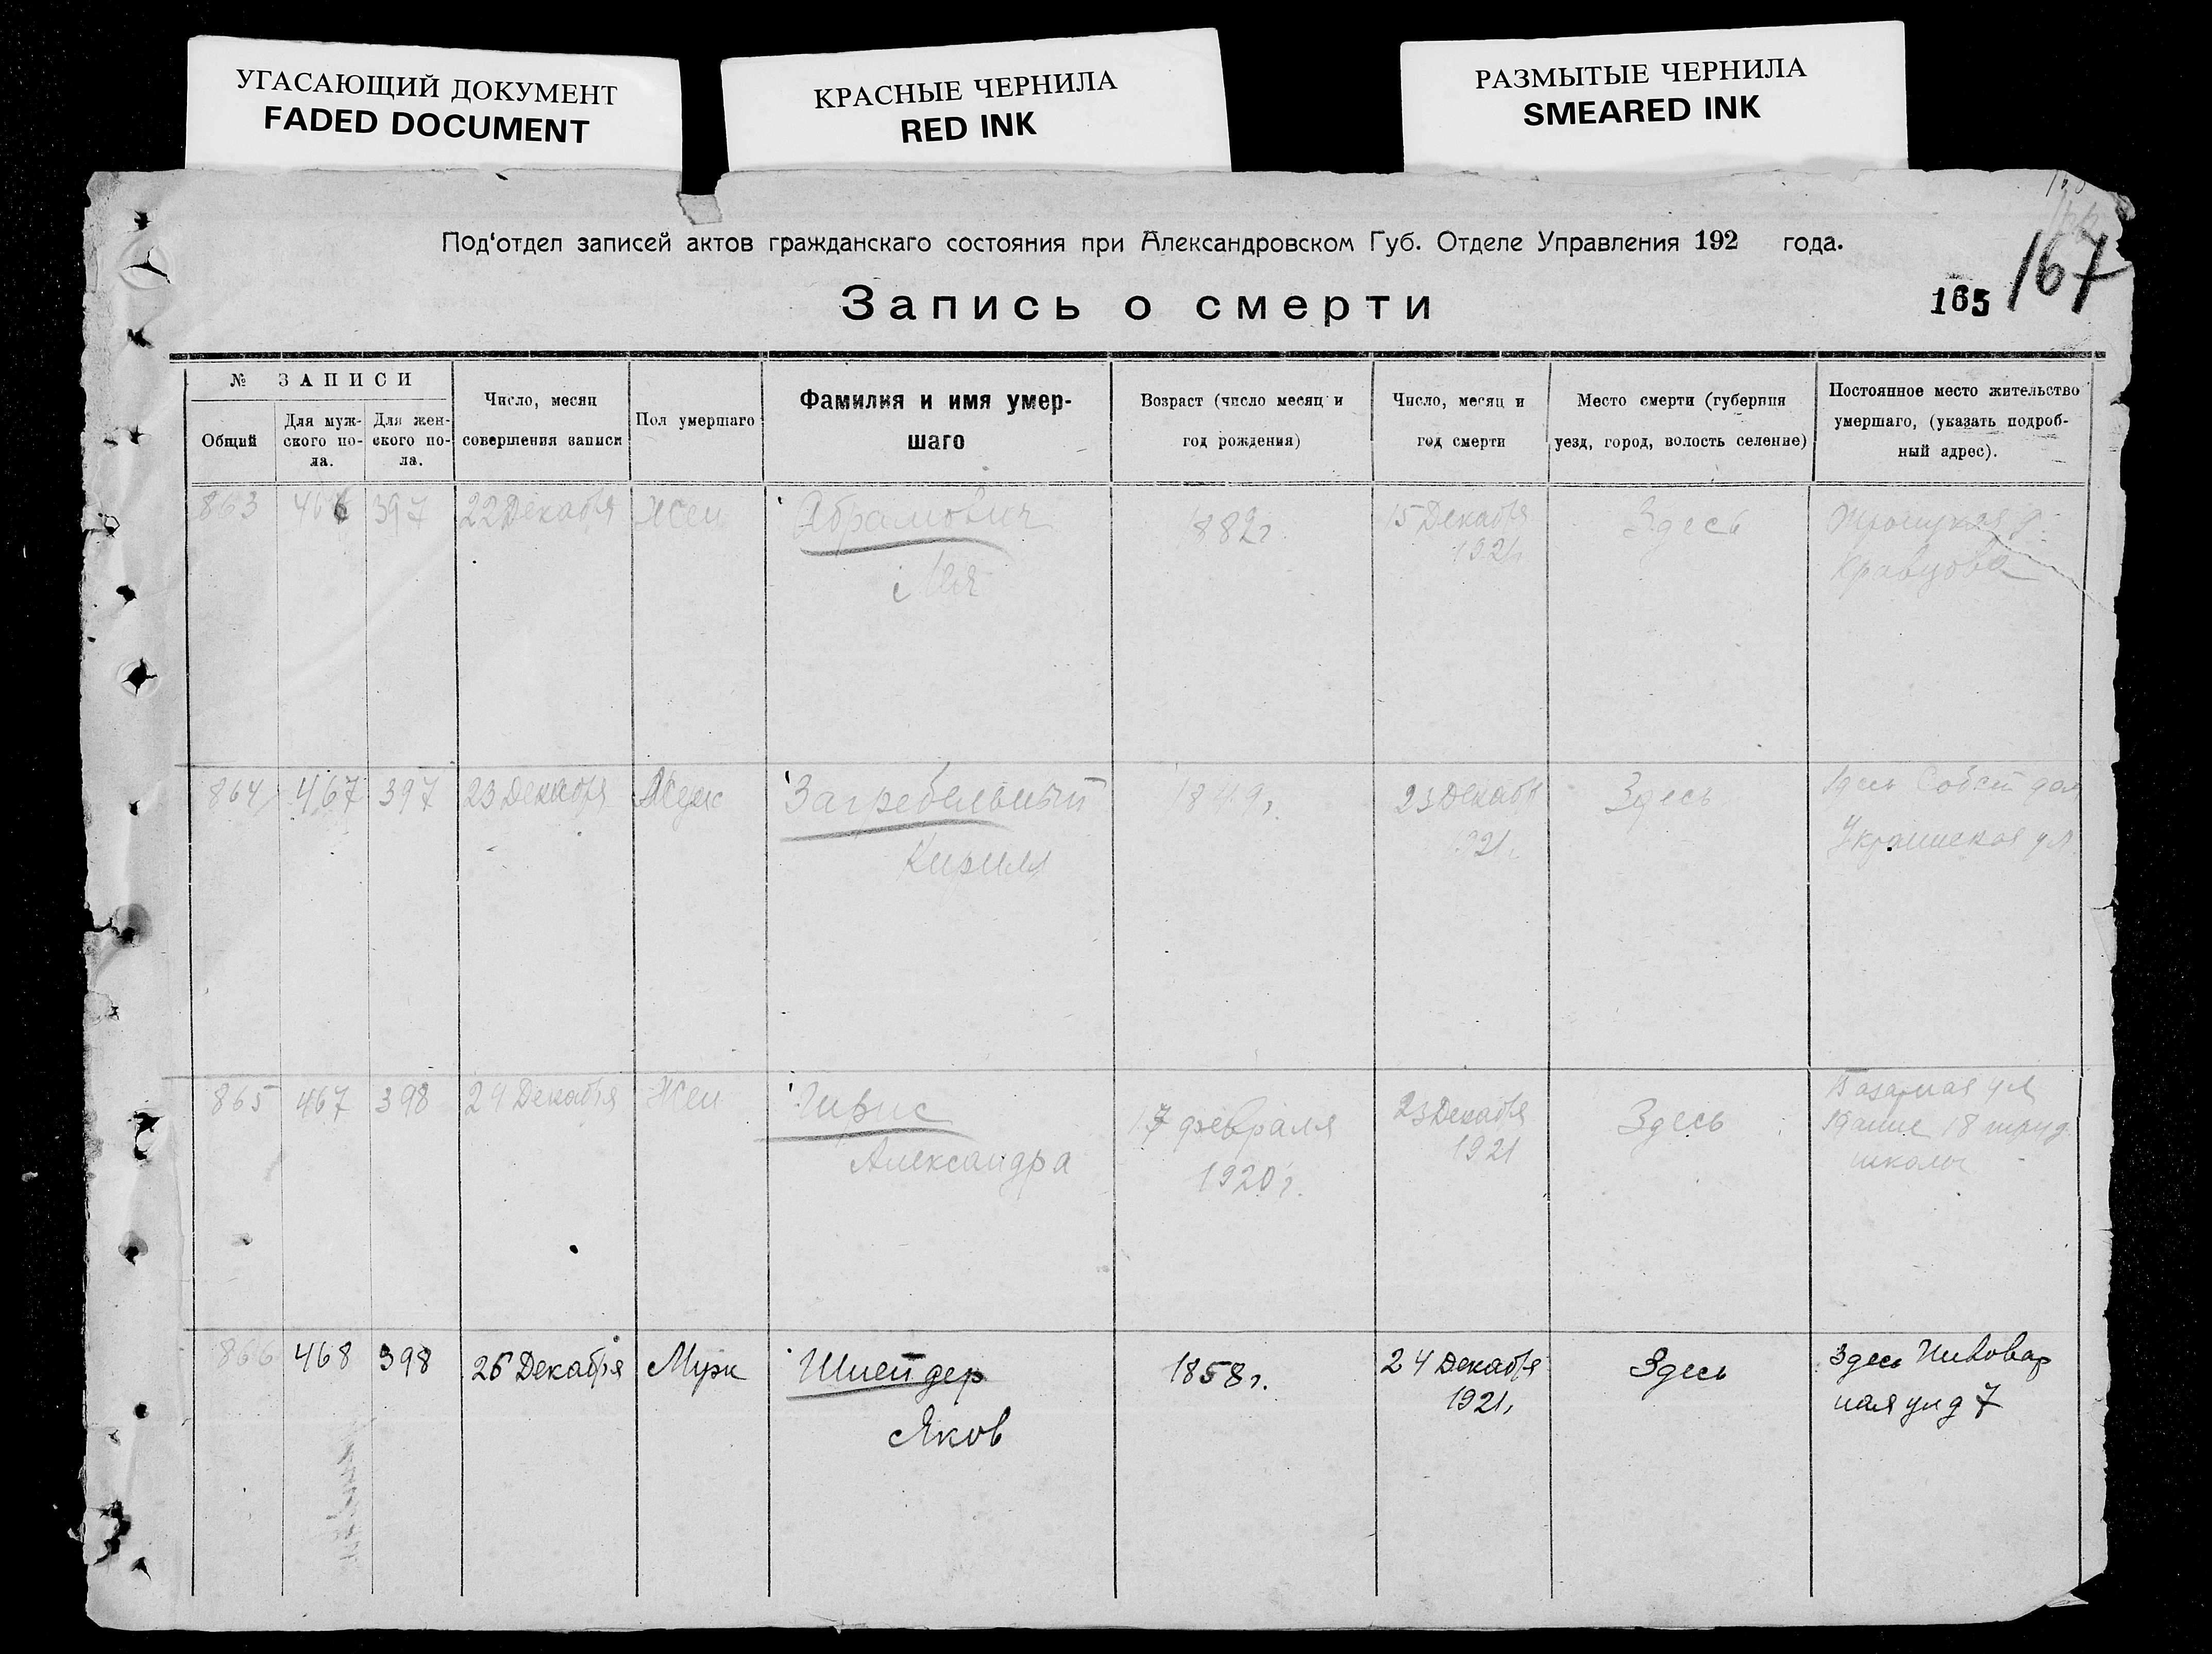 УГАСАЮЩИЙ ДОКУМЕНТ
FADED DOCUMENT
КРАСНЫЕ ЧЕРНИЛА
RED INK
РАЗМЫТЫЕ ЧЕРНИЛА
SMEARED INK
Под'отдел записей актов гражданскаго состояния при Александровском Губ. Отделе Управления 192 года.
167
Запись о смерти
165
№ ЗАПИСИ
Общий
Для муж-
ского по-
ла.
Для жен-
ского по-
ла.
Число, месяц
совершения записи
Пол умершаго
Фамилия и имя умер-
шаго
Возраст (число месяц и
год рождения)
Число, месяц и
год смерти
Место смерти (губерния
уезд, город, волость селение)
Постоянное место жительство
умершаго, (указать подроб-
ный адрес).
863 466 397 22 Декабря Жен Абрамович 1882г. 15 Декабря Здесь
1921
Кравцова
864 467 397 23 Декабря Муж Загребельный 1849г. 23 Декабр Здесь Здесь Собст дом
Кирилл 1921. Украинская ул
865 467 398 24 Декабря Жен 17 февраля 23 Декабря Здесь Базарная ул
Александра 1920г. 1921 Здание 18 труд
школы
866 468 398 26 Декабря Муж Шнейдер 1858г. 24 Декабря Здесь Здесь Пивовар
Яков 1921, ная ул д 7